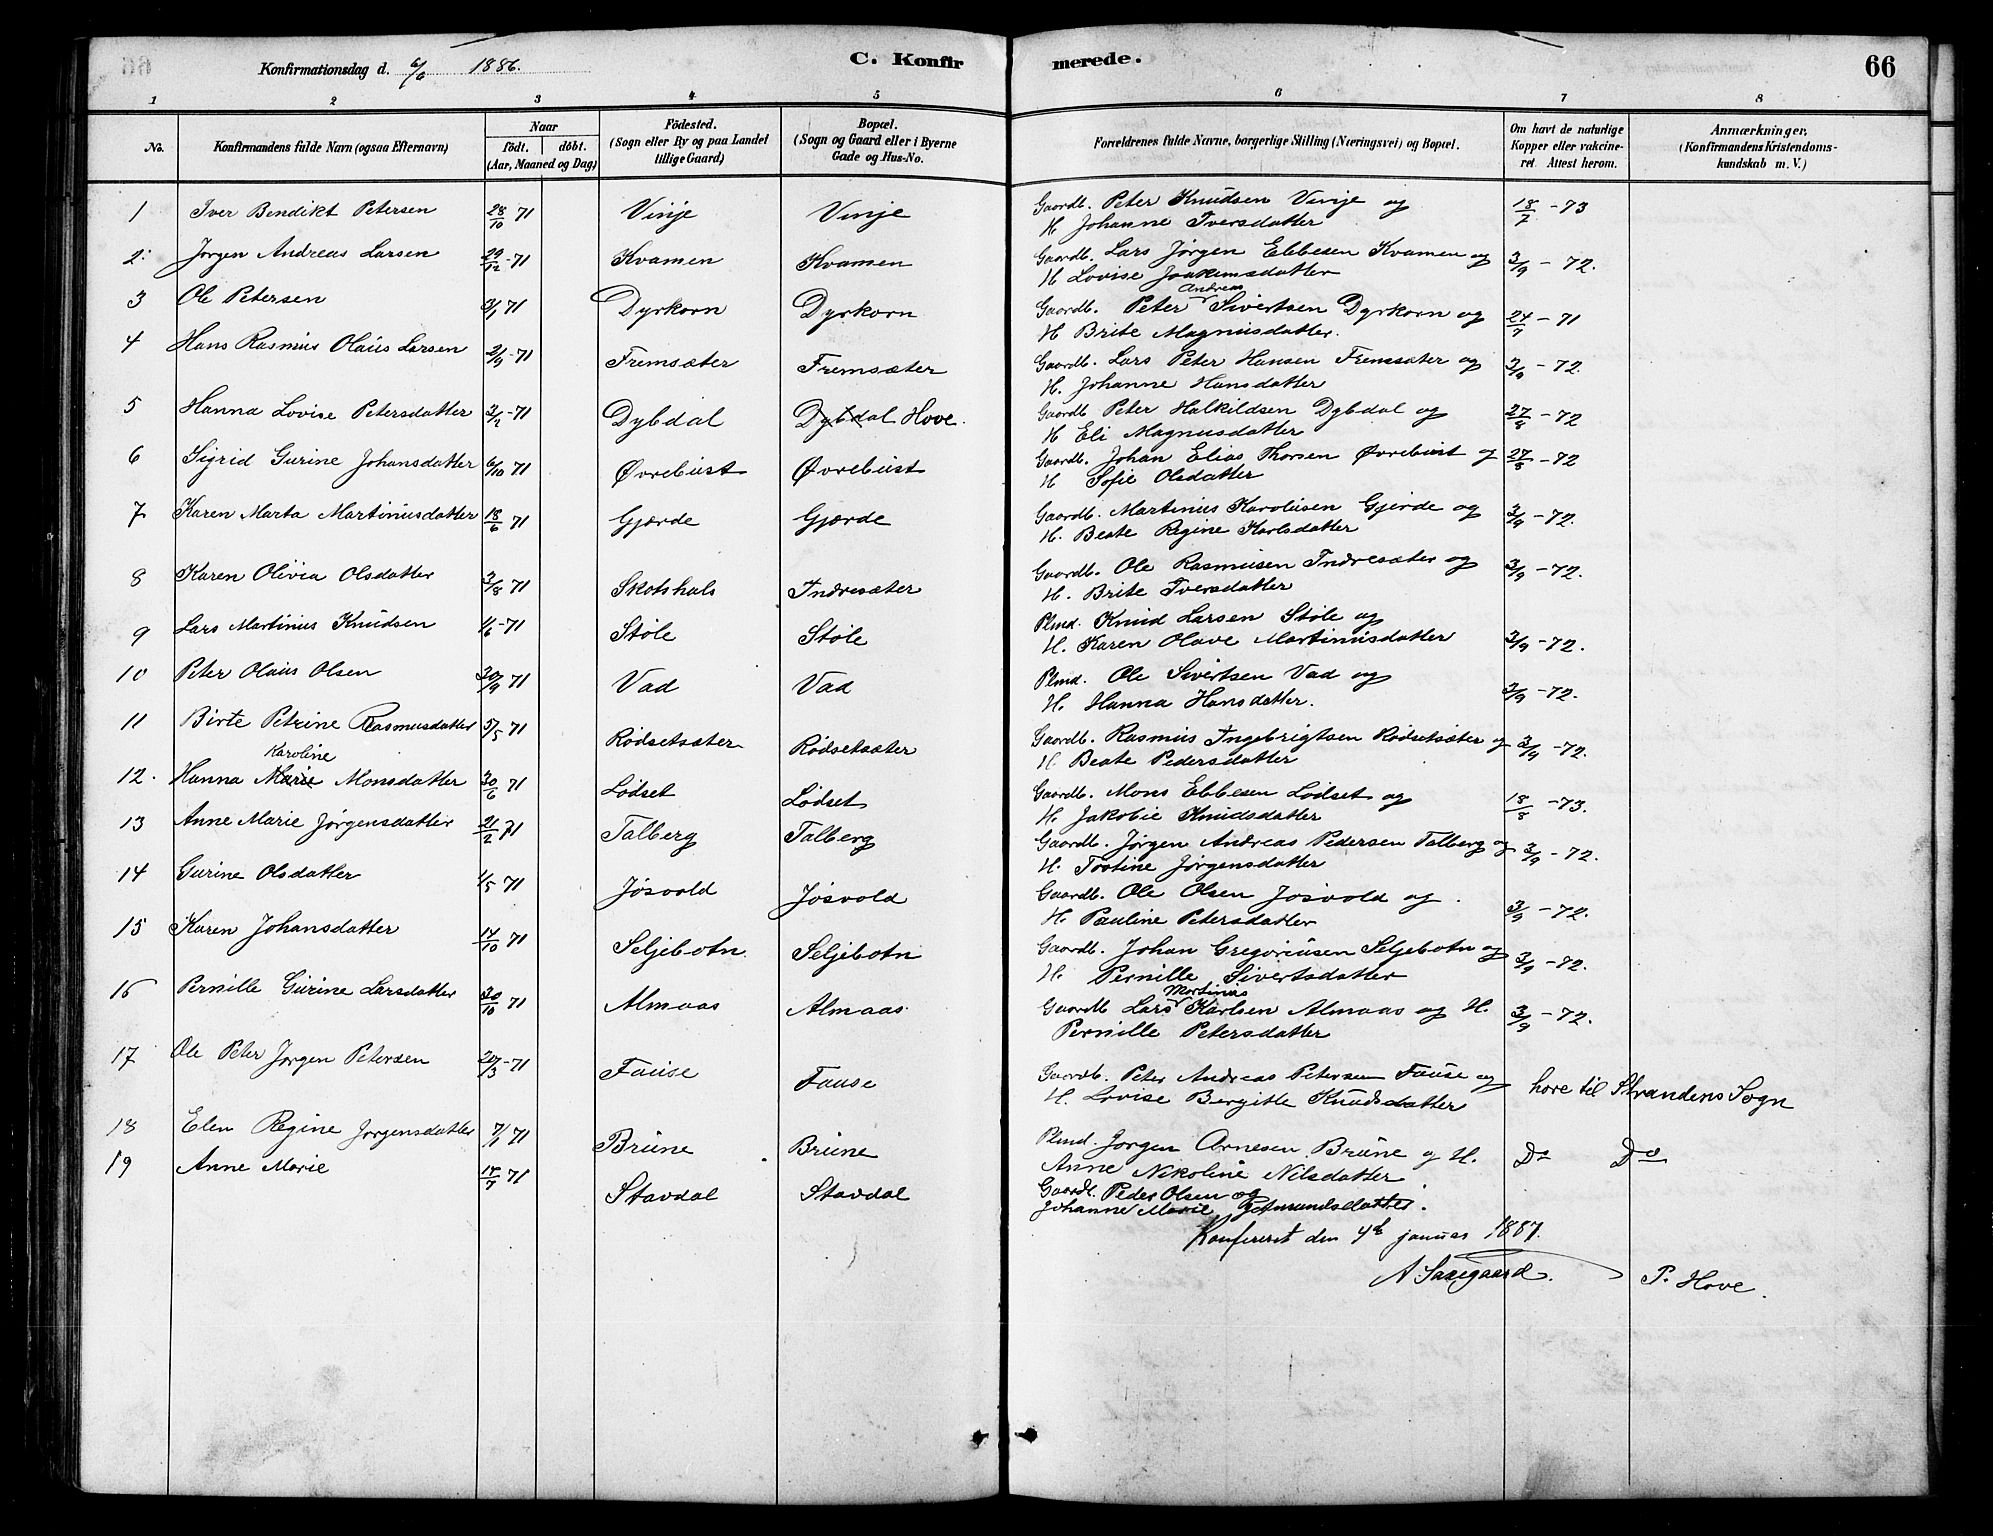 Konfirmationsdag d. 6/6 1886.
C. Konfirmerede.
66
1 2 3 4 5 6 7 8
No.
Konfirmandens fulde Navn (ogsaa Efternavn)
Naar
födt. döbt.
(Aar, Maaned og Dag)
Födested.
(Sogn eller By og paa Landet
tillige Gaard)
Bopæl.
(Sogn og Gaard eller i Byerne
Gade og Hus-No.
Forældrenes fulde Navne, borgerlige Stilling (Næringsvei) og Bopæl.
Om havt de naturlige
Kopper eller vakcine-
ret. Attest herom.
Anmærkninger,
(Konfirmandens Kristendoms-
kundskab m. V.)
1 Iver Bendikt Petersen 28/10 71 Vinje Vinje Gaardb. Peter Knudsen Vinje og
H. Johanne Iversdatter 18/7 - 73
2. Jørgen Andreas Larsen 29/12 - 71 Kvamen Kvamen Gaardb. Lars Jørgen Ebbesen Kvamen og
H. Lovise Joakimsdatter 3/9 - 72.
3 Ole Petersen 3/1 71 Dyrkorn Dyrkorn Gaardb. Peter Andreas Sivertsen Dyrkorn og
H. Brite Magnusdatter. 24/7 - 71
4 Hans Rasmus Olaus Larsen 2/9 - 71 Fremsæter Fremsæter Gaardb. Lars Peter Hansen Fremsæter og
H. Johanne Hansdatter 3/9 - 72.
5 Hanna Lovise Petersdatter 3/2 - 71 Dybdal Dybdal Hove. Gaardb. Peter Halkildsen Dybdal og
H. Eli Magnusdatter 27/8 - 72
6 Sigrid Gurine Johansdatter 6/10 71 Øvrebust Øvrebust Gaardb. Johan Elias Thorsen Øvrebust og
H. Sofie Olsdatter 27/8 - 72
7 Karen Marta Martinusdatter 18/6 71 Gjærde Gjærde Gaardb. Martinus Karolusen Gjerde og
H. Beate Regine Karlsdatter 3/9 - 72.
8 Karen Olivia Olsdatter 3/8 71 Skotshals Indresæter Gaardb. Ole Rasmusen Indresæter og
H. Brite Iversdatter 3/9 - 72.
9 Lars Martinus Knudsen 1/6 - 71 Støle Støle Plmd. Knud Larsen Støle og
H. Karen Olave Martinusdatter 3/9 - 72.
10 Peter Olaus Olsen 30/9 71 Vad Vad Plmd. Ole Sivertsen Vad og
H. Hanna Hansdatter. 3/9 - 72.
11 Birte Petrine Rasmusdatter 5/5 71 Rødsetsæter Rødsetsæter Gaardb. Rasmus Ingebrigtsen Rødsetsæter og
H. Beate Pedersdatter 3/9 - 72.
Karoline
12. Hanna Marie Monsdatter 30/6 71 Lødset Lødset Gaardb. Mons Ebbesen Lødset og
H. Jakobie Knudsdatter 18/8 - 73.
13 Anne Marie Jørgensdatter 21/2 71 Talberg Talberg Gaardb. Jørgen Andreas Pedersen Talberg og
H. Tostine Jørgensdatter 3/9 - 72.
14 Gurine Olsdatter 1/5 71 Jøsvold Jøsvold Gaardb. Ole Olsen Jøsvold og
H. Pauline Petersdatter 3/9 - 72.
15 Karen Johansdatter 17/10 71 Seljebotn Seljebotn Gaardb. Johan Gregoriusen Seljebotn og
H. Pernille Sivertsdatter 3/9 - 72.
16 Pernille Gurine Larsdatter 30/10 71 Almaas Almaas Gaardb Lars Martinus Karlsen Almaas og H.
Pernille Petersdatter 3/9 - 72.
17 Ole Peter Jørgen Petersen 20/3 - 71 Fause Fause Gaardb. Peter Andreas Petersen Fause og
H. Lovise Bergitte Knudsdatter höre til Strandens Sogn
18 Elen Regine Jørgensdatter 7/1 71 Brune Brune Plmd. Jørgen Arnesen Brune og H.
Anne Nikoline Nilsdatter Do Do
19 Anne Marie 17/7 71 Stavdal Stavdal Gaardb. Peder Olsen og
Johanne Marie
Konfereret den 4de januar 1887.
A Saxegaard. P. Hove.